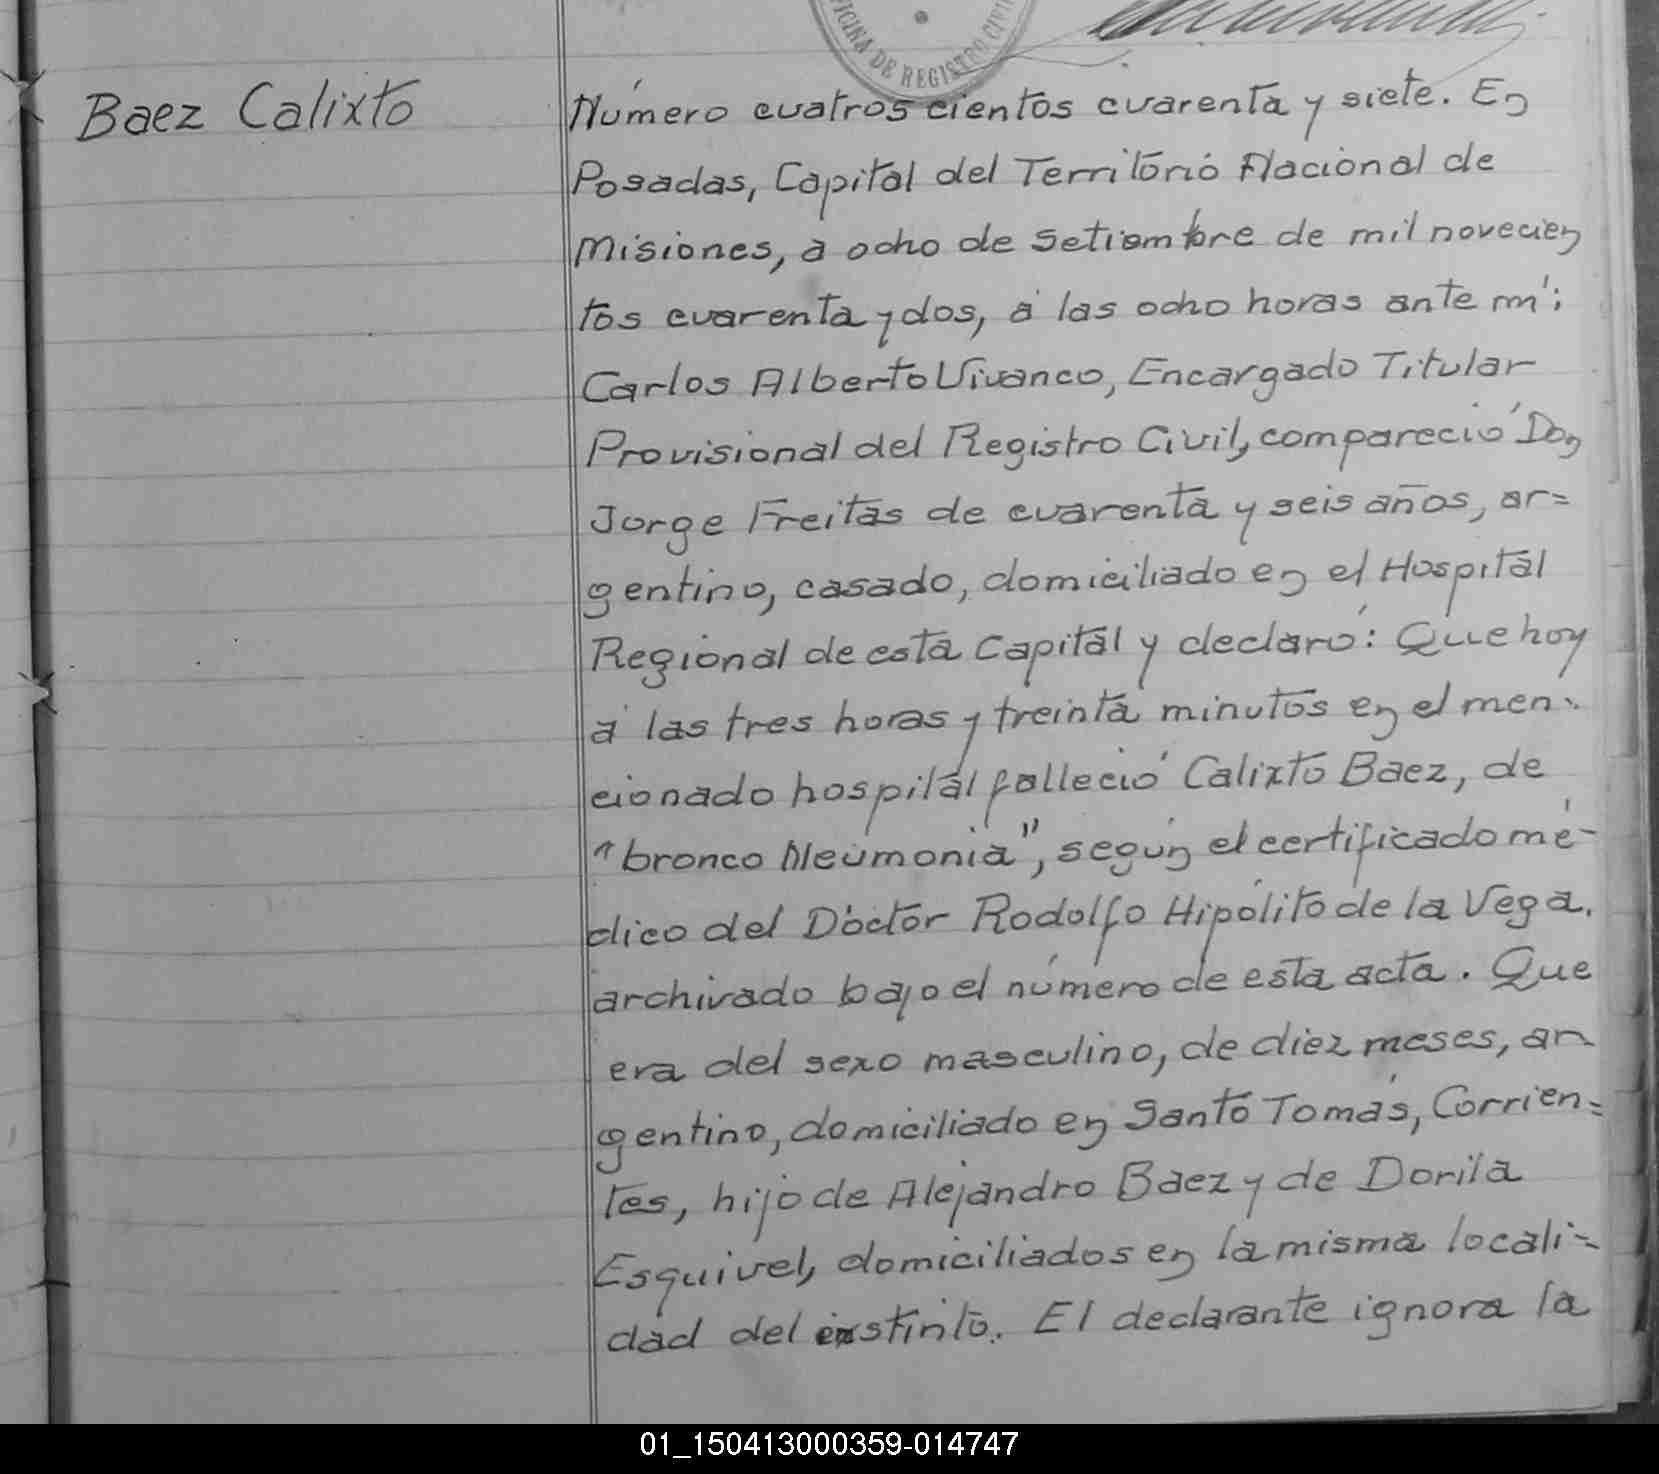 OFICINA DE REGISTRO CIVIL
Baez Calixto
Número cuatroscientos cuarenta y siete. En
Posadas, Capital del Territorio Nacional de
Misiones, a ocho de Setiembre de mil novecien
tos cuarenta y dos, á las ocho horas ante mi;
Carlos Alberto Vivanco, Encargado Titular
Provisional del Registro Civil, compareció Don
Jorge Freitas de cuarenta y seis años, ar=
gentino, casado, domiciliado en el Hospital
Regional de esta Capital y declaró: Que hoy
á las tres horas y treinta minutos en el men-
cionado hospital falleció Calixto Baez, de
"bronco Neumonia", según el certificado mé-
dico del Doctor Rodolfo Hipólito de la Vega.
archivado bajo el número de esta acta. Que
era del sexo masculino, de diez meses, ar
gentino, domiciliado en Santo Tomás, Corrien=
tes, hijo de Alejandro Baez y de Dorila
Esquivel, domiciliados en la misma locali=
dad del exstinto. El declarante ignora la
01_150413000359-014747